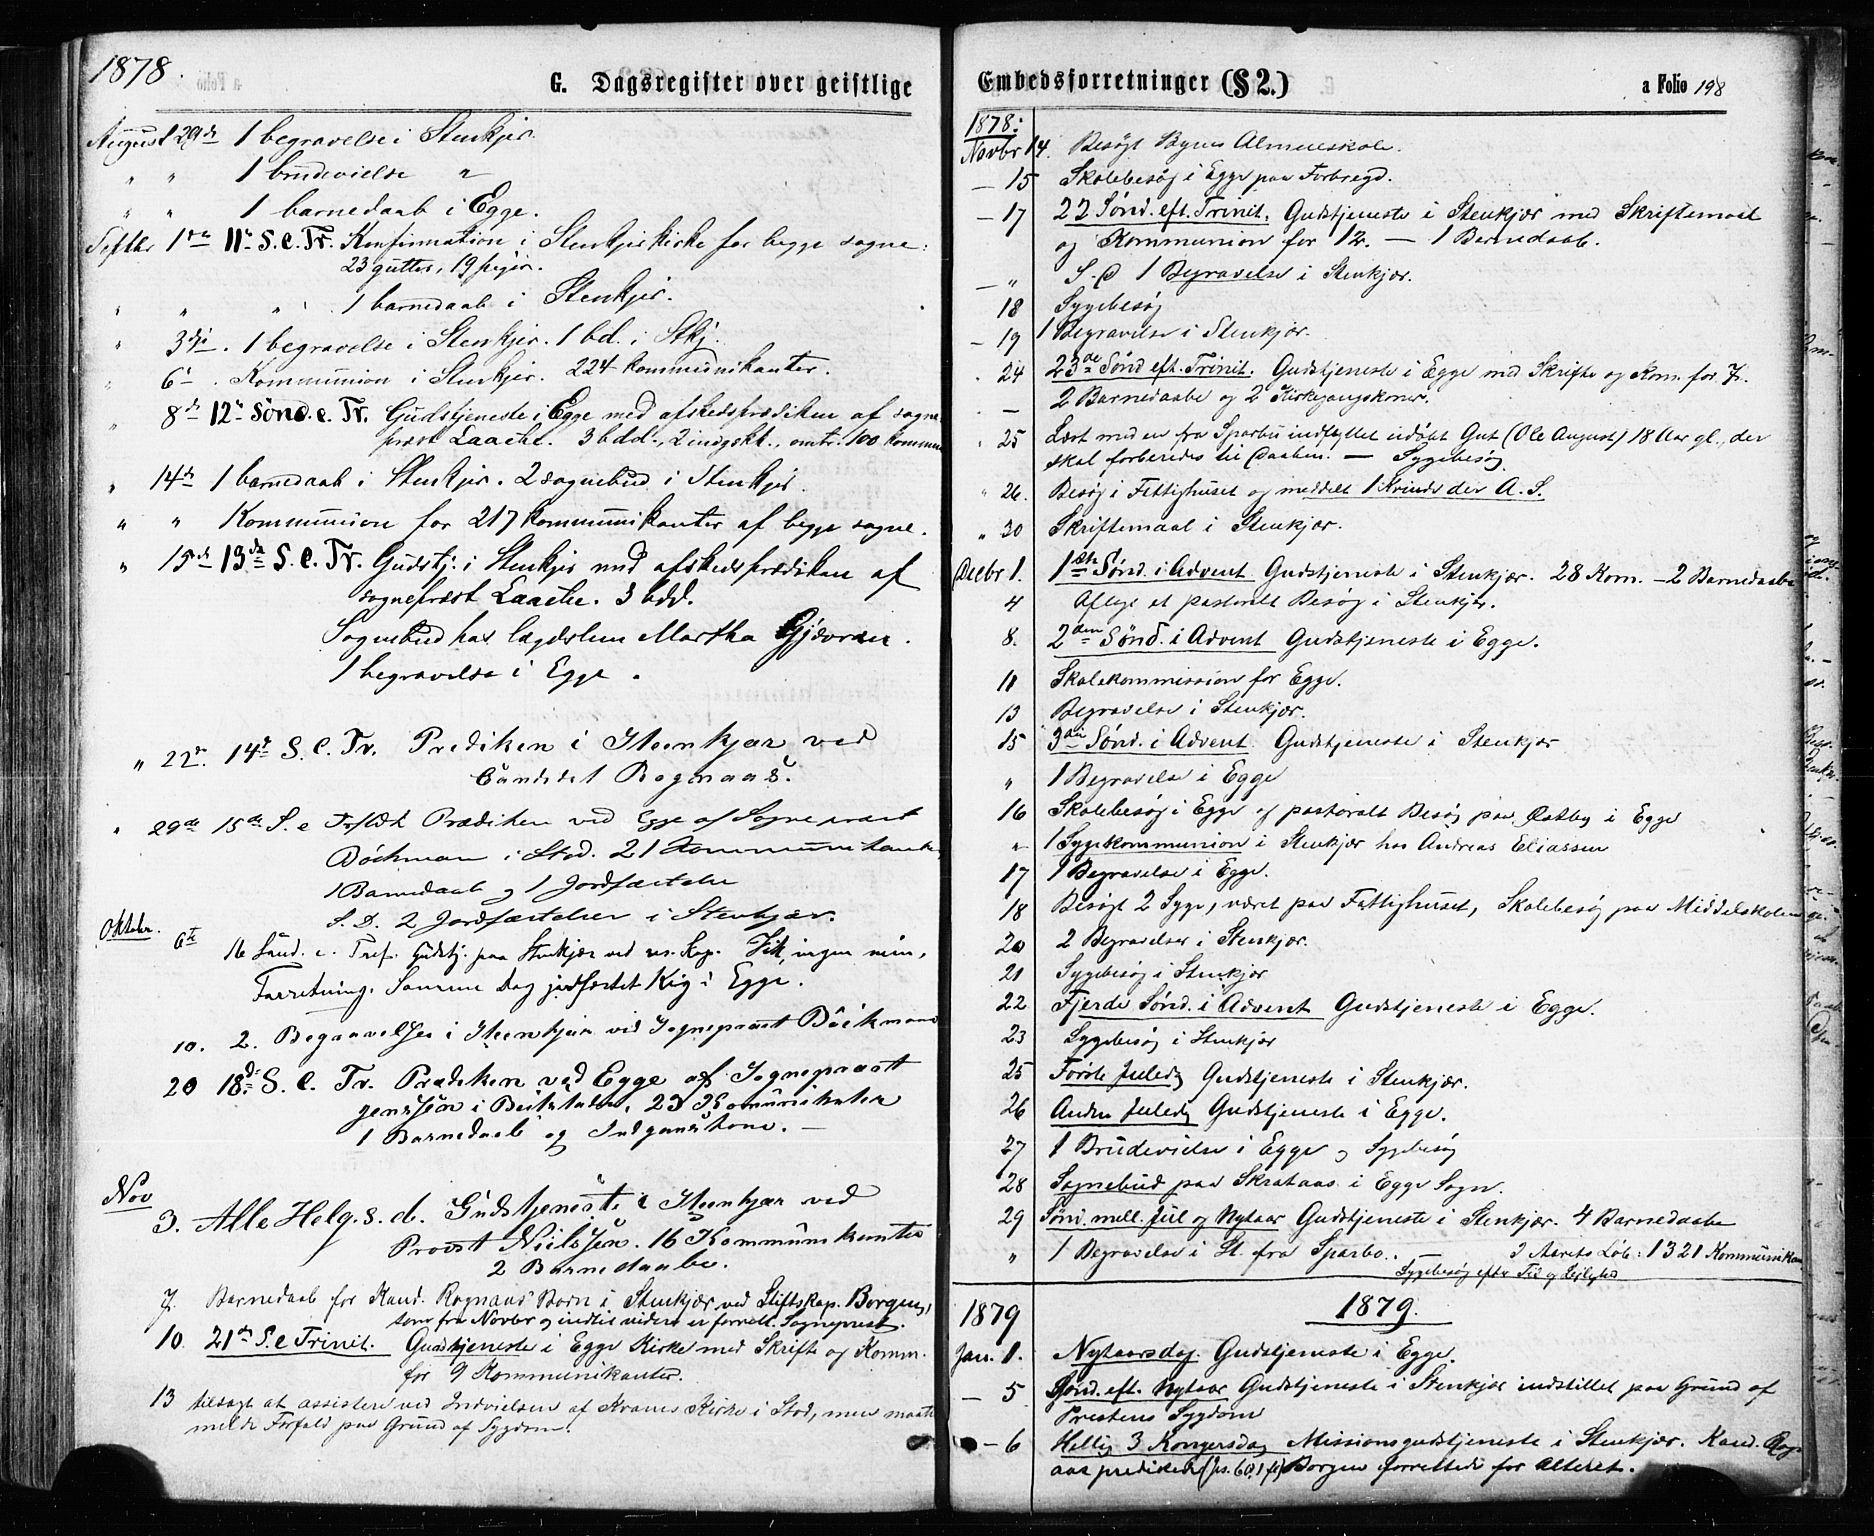 1878.
G. Dagsregister over geistlige
August 29de 1 begravelse i Stenkjer.
" " 1 brudevielse "
" " 1 barnedaab i Egge.
Septbr 1ste 11te S. e. Tr. Konfirmation i Stenkjer kirke for begge sogne:
23 gutter, 19 piger.
" " " 1 barnedaab i Stenkjer.
" 3die. 1 begravelse i Stenkjer. 1 bd. i Stkj.
" 6te. Kommunion i Stenkjer. 224 kommunikanter.
" 8de 12te Sønd. e. Tr. Gudstjeneste i Egge med afskedsprædiken af sogne-
præst Laache. 3 bdd., 2 indgskt., omtr. 100 kommun
" 14de 1 barnedaab i Stenkjer. 2 sognebud i Stenkjer.
" " Kommunion for 217 kommunikanter af begge sogne.
" 15de 13de S. e. Tr. Gudstj. i Stenkjer med afskedsprædiken af
sognepræst Laache. 3 bdd.
Sognebud hos lægdslem Martha Gjævran.
1 begravelse i Egge.
" 22de. 14de S. e. Tr. Prediken i Steenkjær ved
Candidat Rognaas.
" 29de 15de S. e Trefold Prædiken ved Egge af Sognepræst
Böckman i Stod. 21 Kommunikanter
1 Barnedaab og 1 Jordfæstelse
S. D. 2 Jordfæstelser i Stenkjær.
Oktober. 6te 16 Sønd. e. Tref. Gudstj. paa Stenkjær ved res. Kap. Vik, ingen min.
Forretning. Samme Dag jordfæstet Lig i Egge.
10. 2. Begravelser i Steenkjær ved Sognepræst Böckmann
20 18de S. e. Tr. Prædiken ved Egge af Sognepræst
Jenssen i Beitstaden, 23 Kommunikanter
1 Barnedaab og Indgangskone. —
Nov
3. Alle Helg. s. d. Gudstjeneste i Steenkjær ved
Provst Nielssen. 16 Kommunikanter
2 Barnedaabe.
7. Barnedaab for Kand. Rognaas' Barn i Stenkjær ved Stiftskap. Borgen,
som fra Novbr og indtil videre er forrett. Sogneprest.
10. 21de S. e Trinit. Gudstjeneste i Egge Kirke med Skrifte og Komm.
for 9 Kommunikanter.
13 tilsagt at assistere ved Indvielsen af Kvams Kirke i Stod, men maatte
melde Forfald paa Grund af Sygdom.
Embedsforretninger (§ 2.)
a Folio 198
1878:
Novbr 14. Besøgt Byens Almueskole.
— 15 Skolebesøg i Egge paa Forbregd.
— 17 22 Sønd. eft. Trinit. Gudstjeneste i Stenkjær med Skriftemaal
og Kommunion for 12. — 1 Barnedaab.
— " S. D 1 Begravelse i Stenkjær.
18 Sygebesøg
— 19 1 Begravelse i Stenkjær.
24 23de Sønd eft. Trinit. Gudstjeneste i Egge med Skrifte og Kom. for 7.
— 2 Barnedaabe og 2 Kirkegangskoner.
" 25 Læst med en fra Sparbu indflyttet udøbt Gut (Ole August) 18 Aar gl., der
skal forberedes til Daaben. — Sygebesøg.
" 26. Besøg i Fattighuset og meddelt 1 Kvinde der A. S.
" 30 Skriftemaal i Stenkjær.
Decbr 1. 1ste Sønd. i Advent Gudstjeneste i Stenkjær. 28 Kom. — 2 Barnedaabe
4 Aflagt et pastoralt Besøg i Stenkjær.
8. 2den Sønd. i Advent Gudstjeneste i Egge.
11 Skolekommission for Egge.
13 Begravelse i Stenkjær.
15 3die Sønd. i Advent Gudstjeneste i Stenkjær
" 1 Begravelse i Egge
16 Skolebesøg i Egge og pastoralt Besøg paa Østby i Egge
" 1 Sygekommunion i Stenkjær hos Andreas Eliassen
17 1 Begravelse i Egge.
18 Besøgt 2 Syge, været paa Fattighuset, Skolebesøg paa Middelskolen
20 2 Begravelser i Stenkjær.
21 Sygebesøg i Stenkjær
22 Fjerde Sønd. i Advent Gudstjeneste i Egge.
23 Sygebesøg i Stenkjær
25 Første Juledg Gudstjeneste i Stenkjær.
26 Anden Juledg Gudstjeneste i Egge.
27 1 Brudevielse i Egge og Sygebesøg
28 Sognebud paa Skrataas i Egge Sogn.
29 Sønd. mell. Jul og Nytaar Gudstjeneste i Stenkjær. 4 Barnedaabe
" 1 Begravelse i St. fra Sparbo. — I Aarets Løb: 1321 Kommunikan
Sygebesøg efter Tid og Leilighed
1879 1879.
Jan. 1. Nytaarsdag. Gudstjeneste i Egge.
— 5 Sønd. eft. Nytaar Gudstjeneste i Stenkjær indstillet paa Grund af
Prestens Sygdom
— 6 Hellig 3 Kongersdag Missionsgudstjeneste i Stenkjær. Kand. Rog-
aas predikede (Js. 60,1 ff) Borgen forrettede for Alteret.